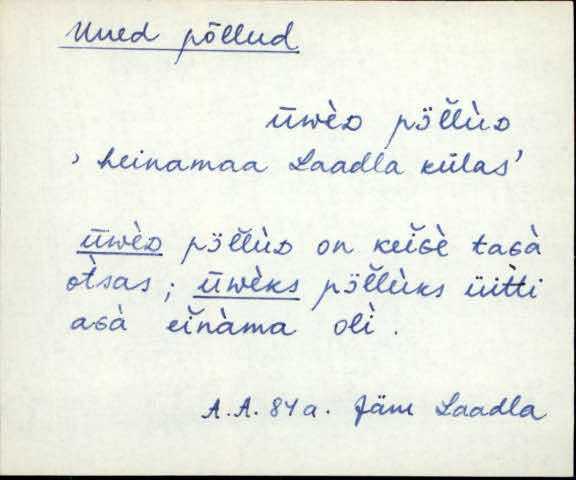 Uued põllud
ūwèD pö̆l̆lùD
, heinamaa Laadla külas'
ūwèD pö̆l̆lùD on keĭsè tasà
òtsas; ūwèks pö̆l̆lùks üìtti
asà eĭnàma olì.
A.A. 84a. Jäm Laadla